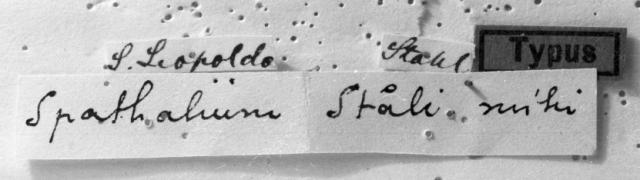 S. Leopoldo. Stahl Typus
Spathalium Ståli mihi